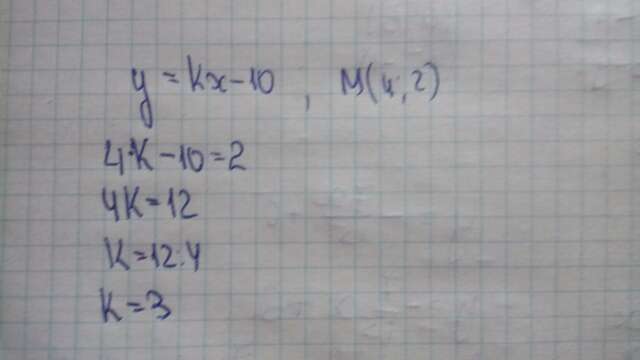 y = kx - 10 , M(4; 2)
4·K - 10 = 2
4K = 12
K = 12:4
K = 3